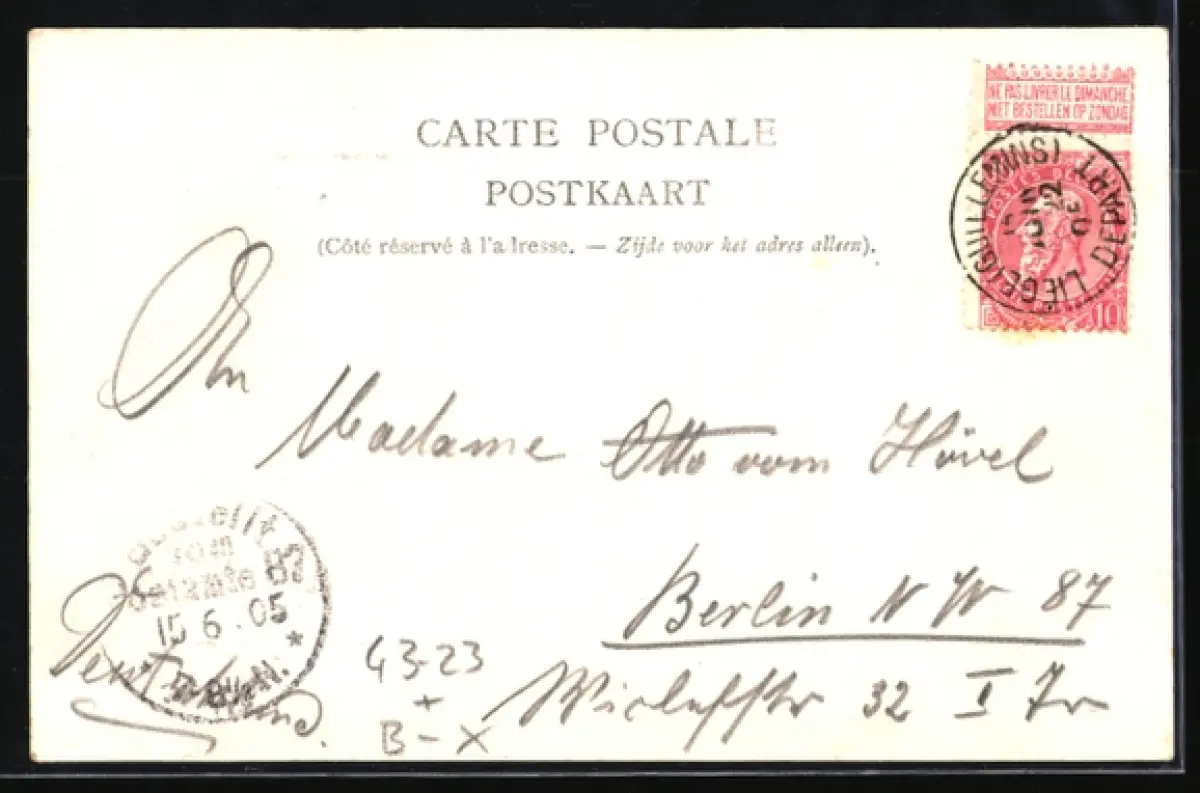 CARTE POSTALE
POSTKAART
(Côté réservé à l'adresse. — Zijde voor het adres alleen).
NE PAS LIVRER LE DIMANCHE
NIET BESTELLEN OP ZONDAG
LIÉGE (GUILLEMINS)
DEPART
10
An
Madame Otto vom Hövel
Berlin N W 87
Wiclefstr 32 I
15 6.05
Deutschland.
43-23
+
B-X